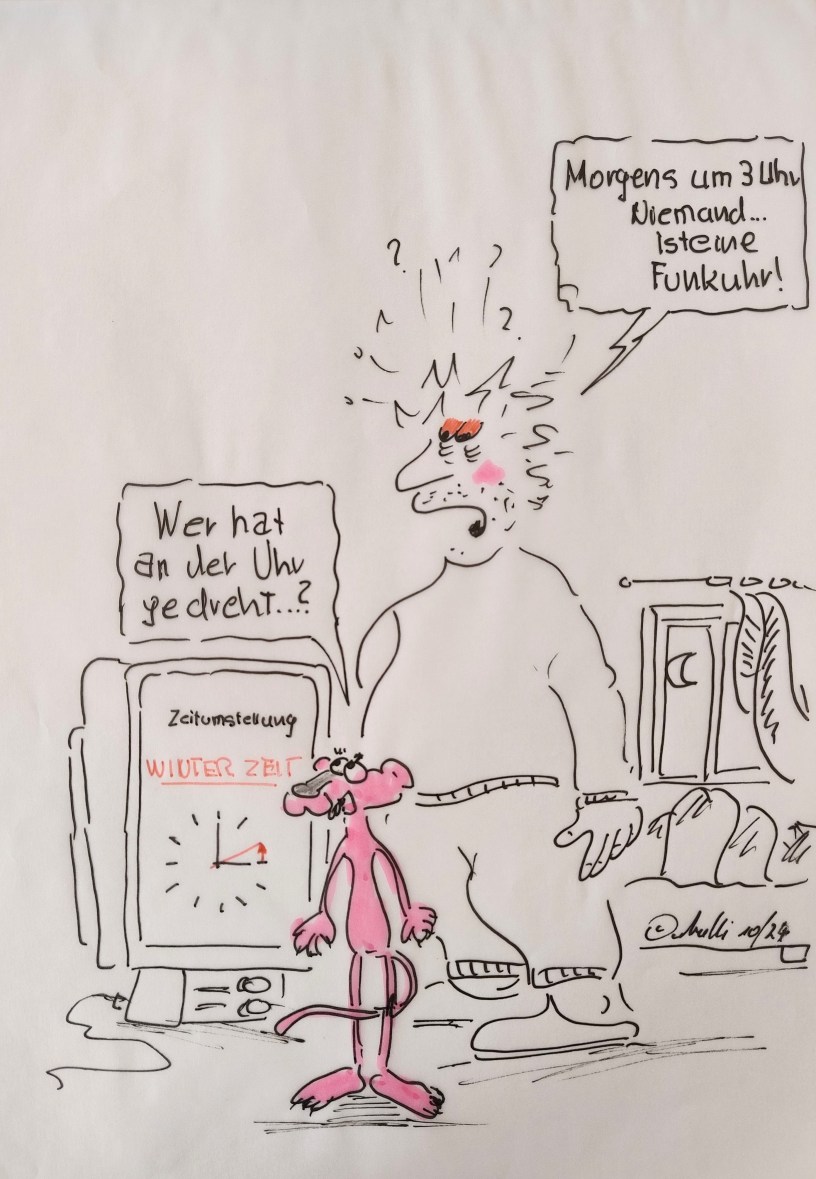 Morgens um 3 Uhr
Niemand...
ist eine
Funkuhr!
?
?
?
Wer hat
an der Uhr
gedreht...?
Zeitumstellung
WINTER ZEIT
© 10/24